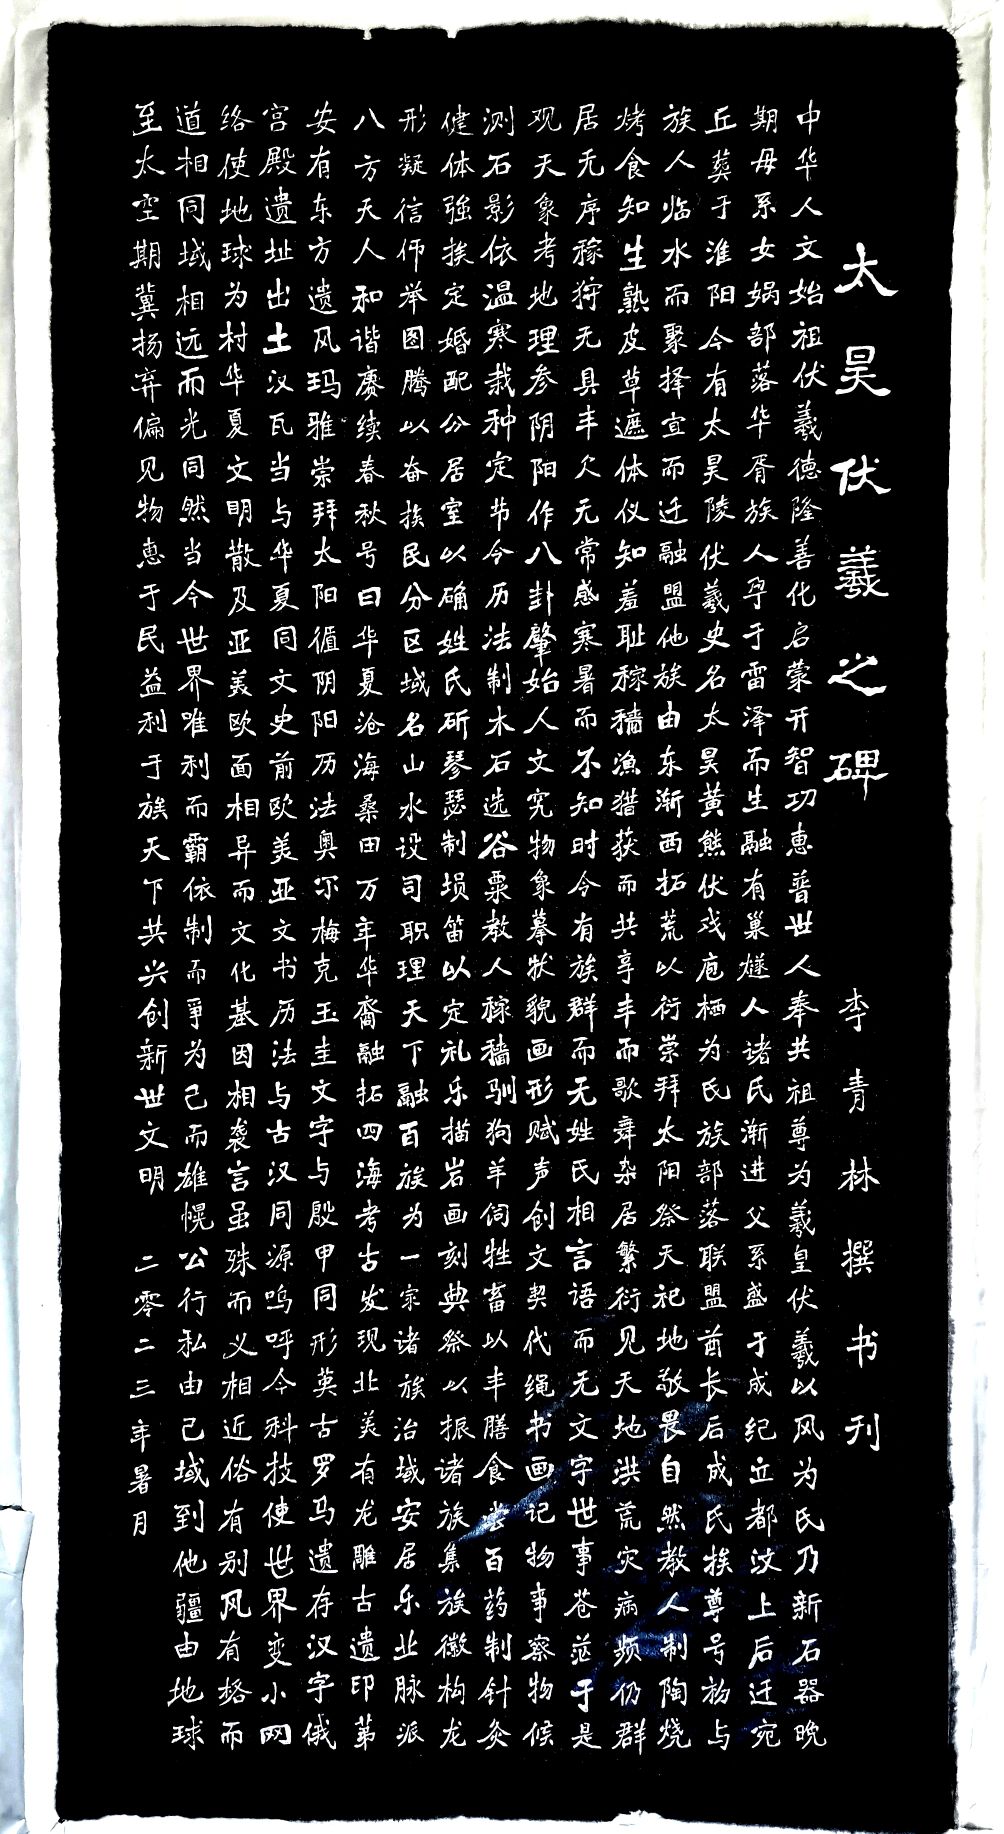 太昊伏羲之碑
李青林撰书刊
中华人文始祖伏羲德隆善化启蒙开智功惠普世人奉共祖尊为羲皇伏羲以风为氏乃新石器晚
期母系女娲部落华胥族人孕于雷泽而生融有巢燧人诸氏渐进父系盛于成纪立都汶上后迁宛
丘葬于淮阳今有太昊陵伏羲史名太昊黄熊伏戏庖栖为氏族部落联盟酋长后成氏族尊号初与
族人临水而聚择宜而迁融盟他族由东渐西拓荒以衍崇拜太阳祭天祀地敬畏自然教人制陶烧
烤食知生熟皮草遮体仪知羞耻稼穑渔猎获而共享丰而歌舞杂居繁衍见天地洪荒灾病频仍群
居无序稼狩无具丰欠无常感寒暑而不知时令有族群而无姓氏相言语而无文字世事苍茫于是
观天象考地理参阴阳作八卦肇始人文究物象摹状貌画形赋声创文契代绳书画记物事察物候
测石影依温寒栽种定节令历法制木石选谷粟教人稼穑驯狗羊饲牲畜以丰膳食尝百药制针灸
健体强族定婚配公居室以确姓氏斫琴瑟制埙笛以定礼乐描岩画刻典祭以振诸族集族徽构龙
形凝信仰举图腾以奋族民分区域名山水设司职理天下融百族为一家诸族治域安居乐业脉派
八方天人和谐赓续春秋号曰华夏沧海桑田万年华裔融拓四海考古发现北美有龙雕古遗印第
安有东方遗风玛雅崇拜太阳循阴阳历法奥尔梅克玉圭文字与殷甲同形英古罗马遗存汉字俄
宫殿遗址出土汉瓦当与华夏同文史前欧美亚文书历法与古汉同源呜呼今科技使世界变小网
络使地球为村华夏文明散及亚美欧面相异而文化基因相袭言虽殊而义相近俗有别风有格而
道相同域相远而光同然当今世界唯利而霸依制而争为己而雄幌公行私由己域到他疆由地球
至太空期冀扬弃偏见物惠于民益利于族天下共兴创新世文明 二零二三年暑月